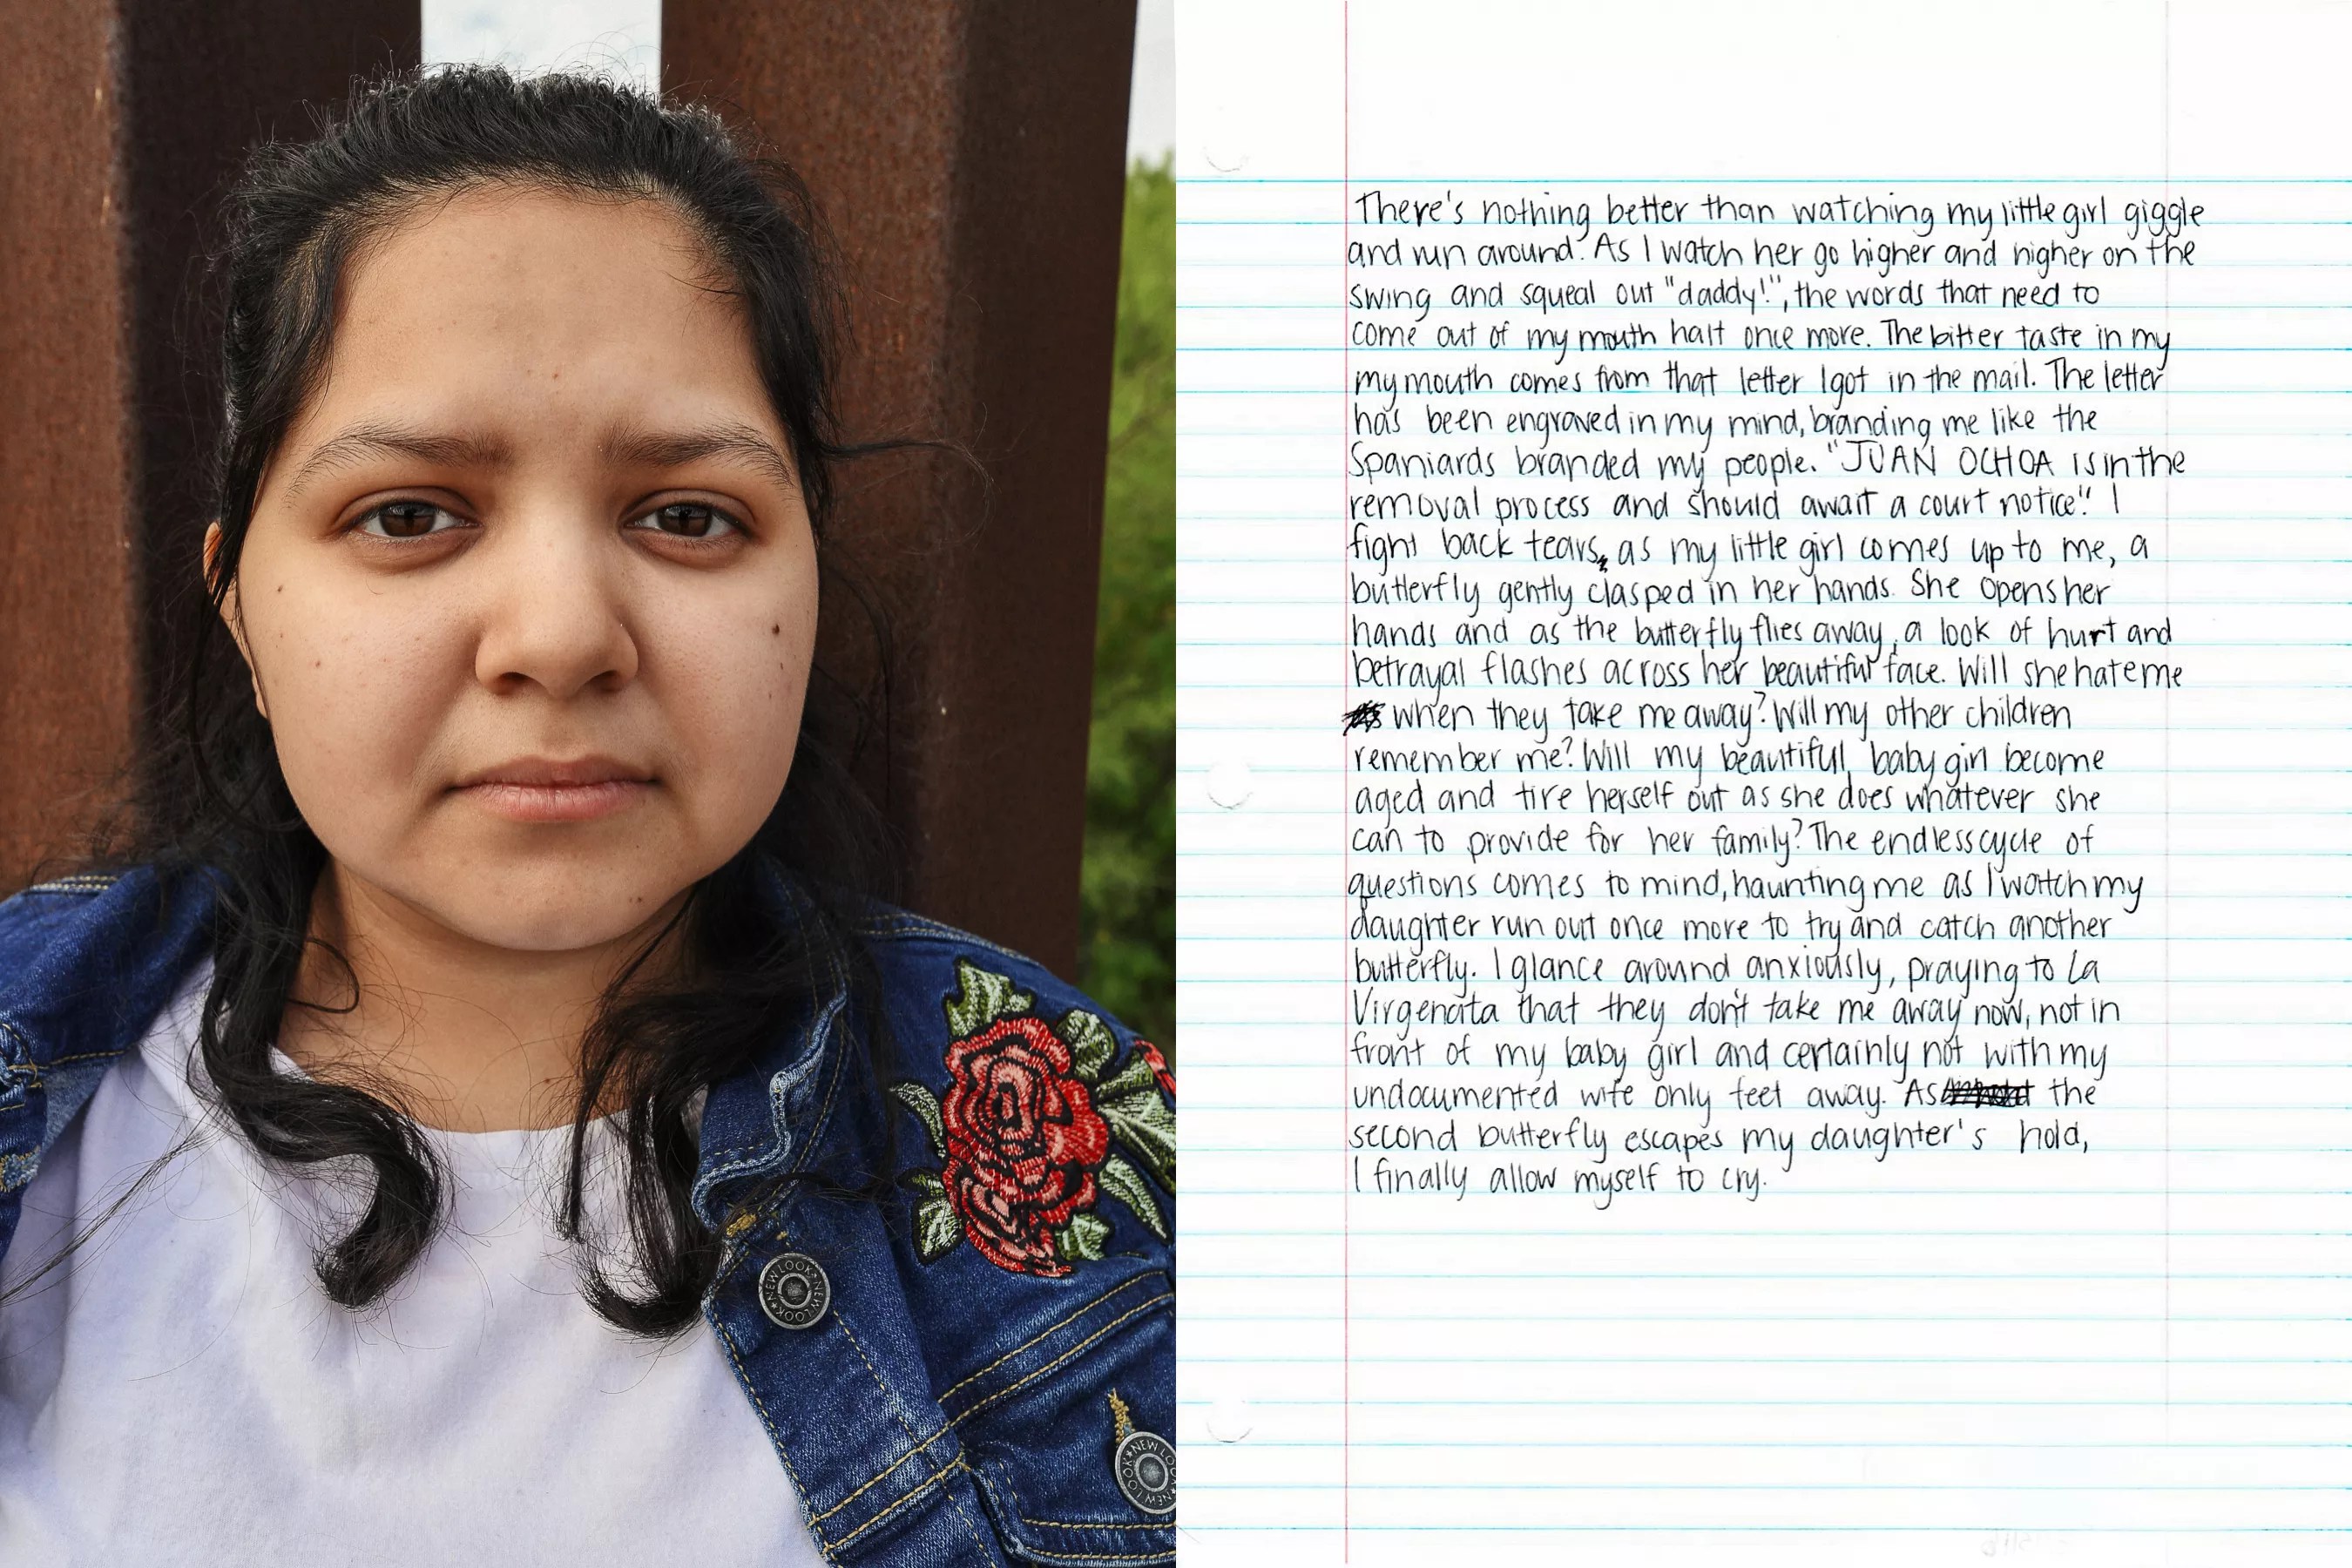 There's nothing better than watching my little girl giggle
and run around. As I watch her go higher and higher on the
swing and squeal out "daddy!", the words that need to
come out of my mouth halt once more. The bitter taste in my
my mouth comes from that letter I got in the mail. The letter
has been engraved in my mind, branding me like the
Spaniards branded my people. "JUAN OCHOA is in the
removal process and should await a court notice". I
fight back tears, as my little girl comes up to me, a
butterfly gently clasped in her hands. She opens her
hands and as the butterfly flies away, a look of hurt and
betrayal flashes across her beautiful face. Will she hate me
when they take me away? Will my other children
remember me? Will my beautiful, baby girl become
aged and tire herself out as she does whatever she
can to provide for her family? The endless cycle of
questions comes to mind, haunting me as I watch my
daughter run out once more to try and catch another
butterfly. I glance around anxiously, praying to La
Virgencita that they don't take me away now, not in
front of my baby girl and certainly not with my
undocumented wife only feet away. As the
second butterfly escapes my daughter's hold,
I finally allow myself to cry.
NEW LOOK NEW LOOK
NEW LOOK NEW LOOK